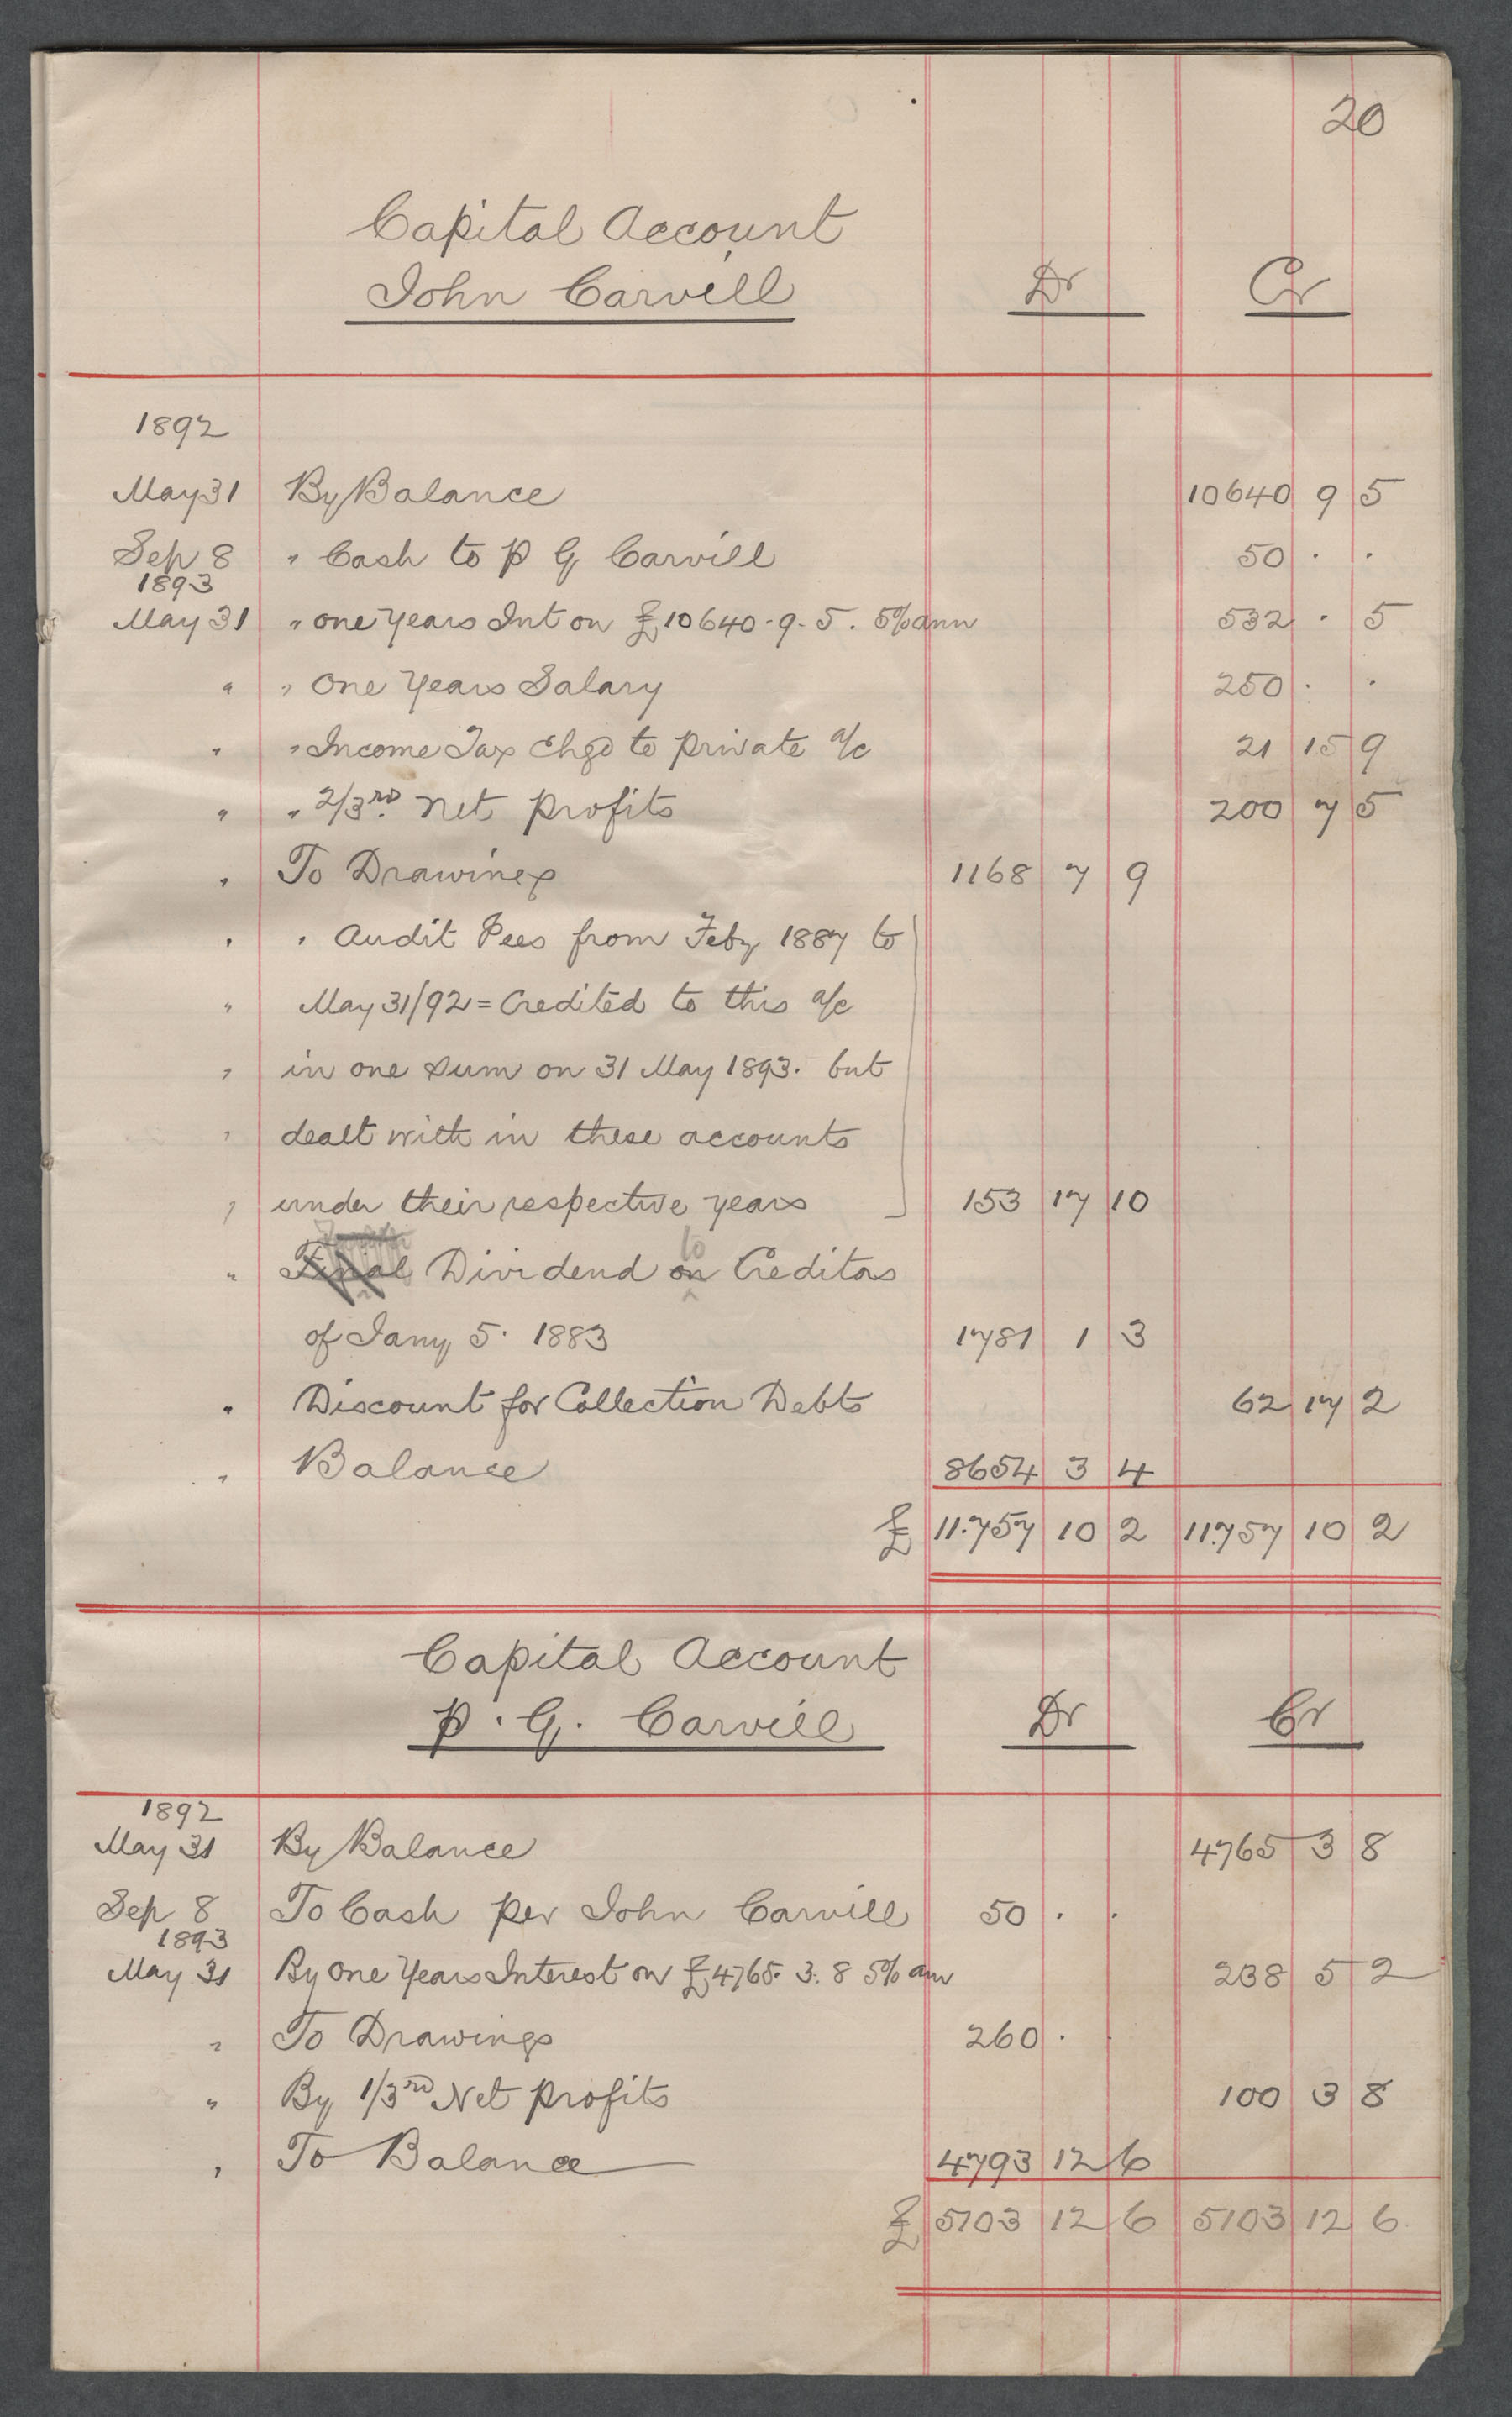 20
Capital Account
John Carvill Dr Cr
1892
May 31 By Balance 10640 9 5
Sep 8 " Cash to P G Carvill 50 . .
1893
May 31 " one Years Int on £10640-9-5. 5% ann 532 . 5
" " One Years Salary 250 . .
" " Income Tax Chgd to private a/c 21 15 9
" " 2/3rd. Net profits 200 7 5
" To Drawings 1168 7 9
" " Audit Fees from Feby 1887 to
" May 31/92 = Credited to this a/c
" in one sum on 31 May 1893. but
" dealt with in these accounts
" under their respective years 153 17 10
to
" Final Dividend on Creditors
of Jany 5. 1883 1781 1 3
" Discount for Collection Debts 62 17 2
" Balance 8654 3 4
£ 11.757 10 2 11.757 10 2
Capital Account
P. G. Carvill Dr Cr
1892
May 31 By Balance 4765 3 8
Sep 8 To Cash per John Carvill 50 . .
1893
May 31 By One Years Interest on £4765. 3. 8 5% ann 238 5 2
" To Drawings 260 . .
" By 1/3rd Net profits 100 3 8
" To Balance 4793 12 6
£ 5103 12 6 5103 12 6